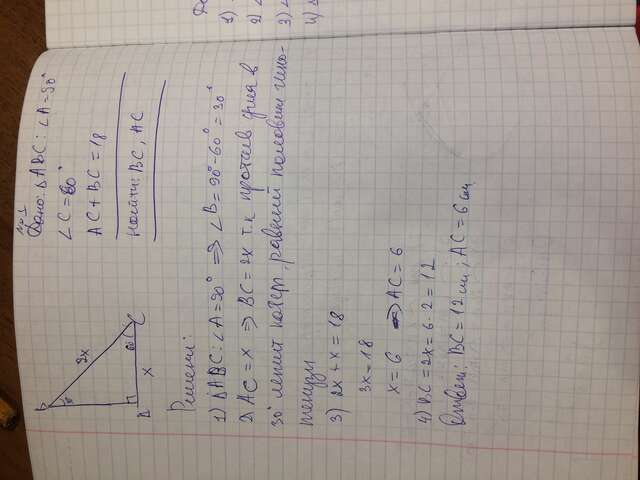 №1
Дано: △ABC: ∠A=90°
∠C=60°
AC+BC=18
Найти: BC, AC
B
2x
A
60°
C
x
Решение:
1) △ABC: ∠A=90° ⇒ ∠B=90°-60°=30°
2) AC=x ⇒ BC=2x т.к против угла в
30° лежит катет, равный половине гипо-
тенузы
3) 2x+x=18
3x=18
x=6 ⇒ AC=6
4) BC=2x=6·2=12
Ответ: BC=12см; AC=6см
1)
2) ∠
3) ∠
4)